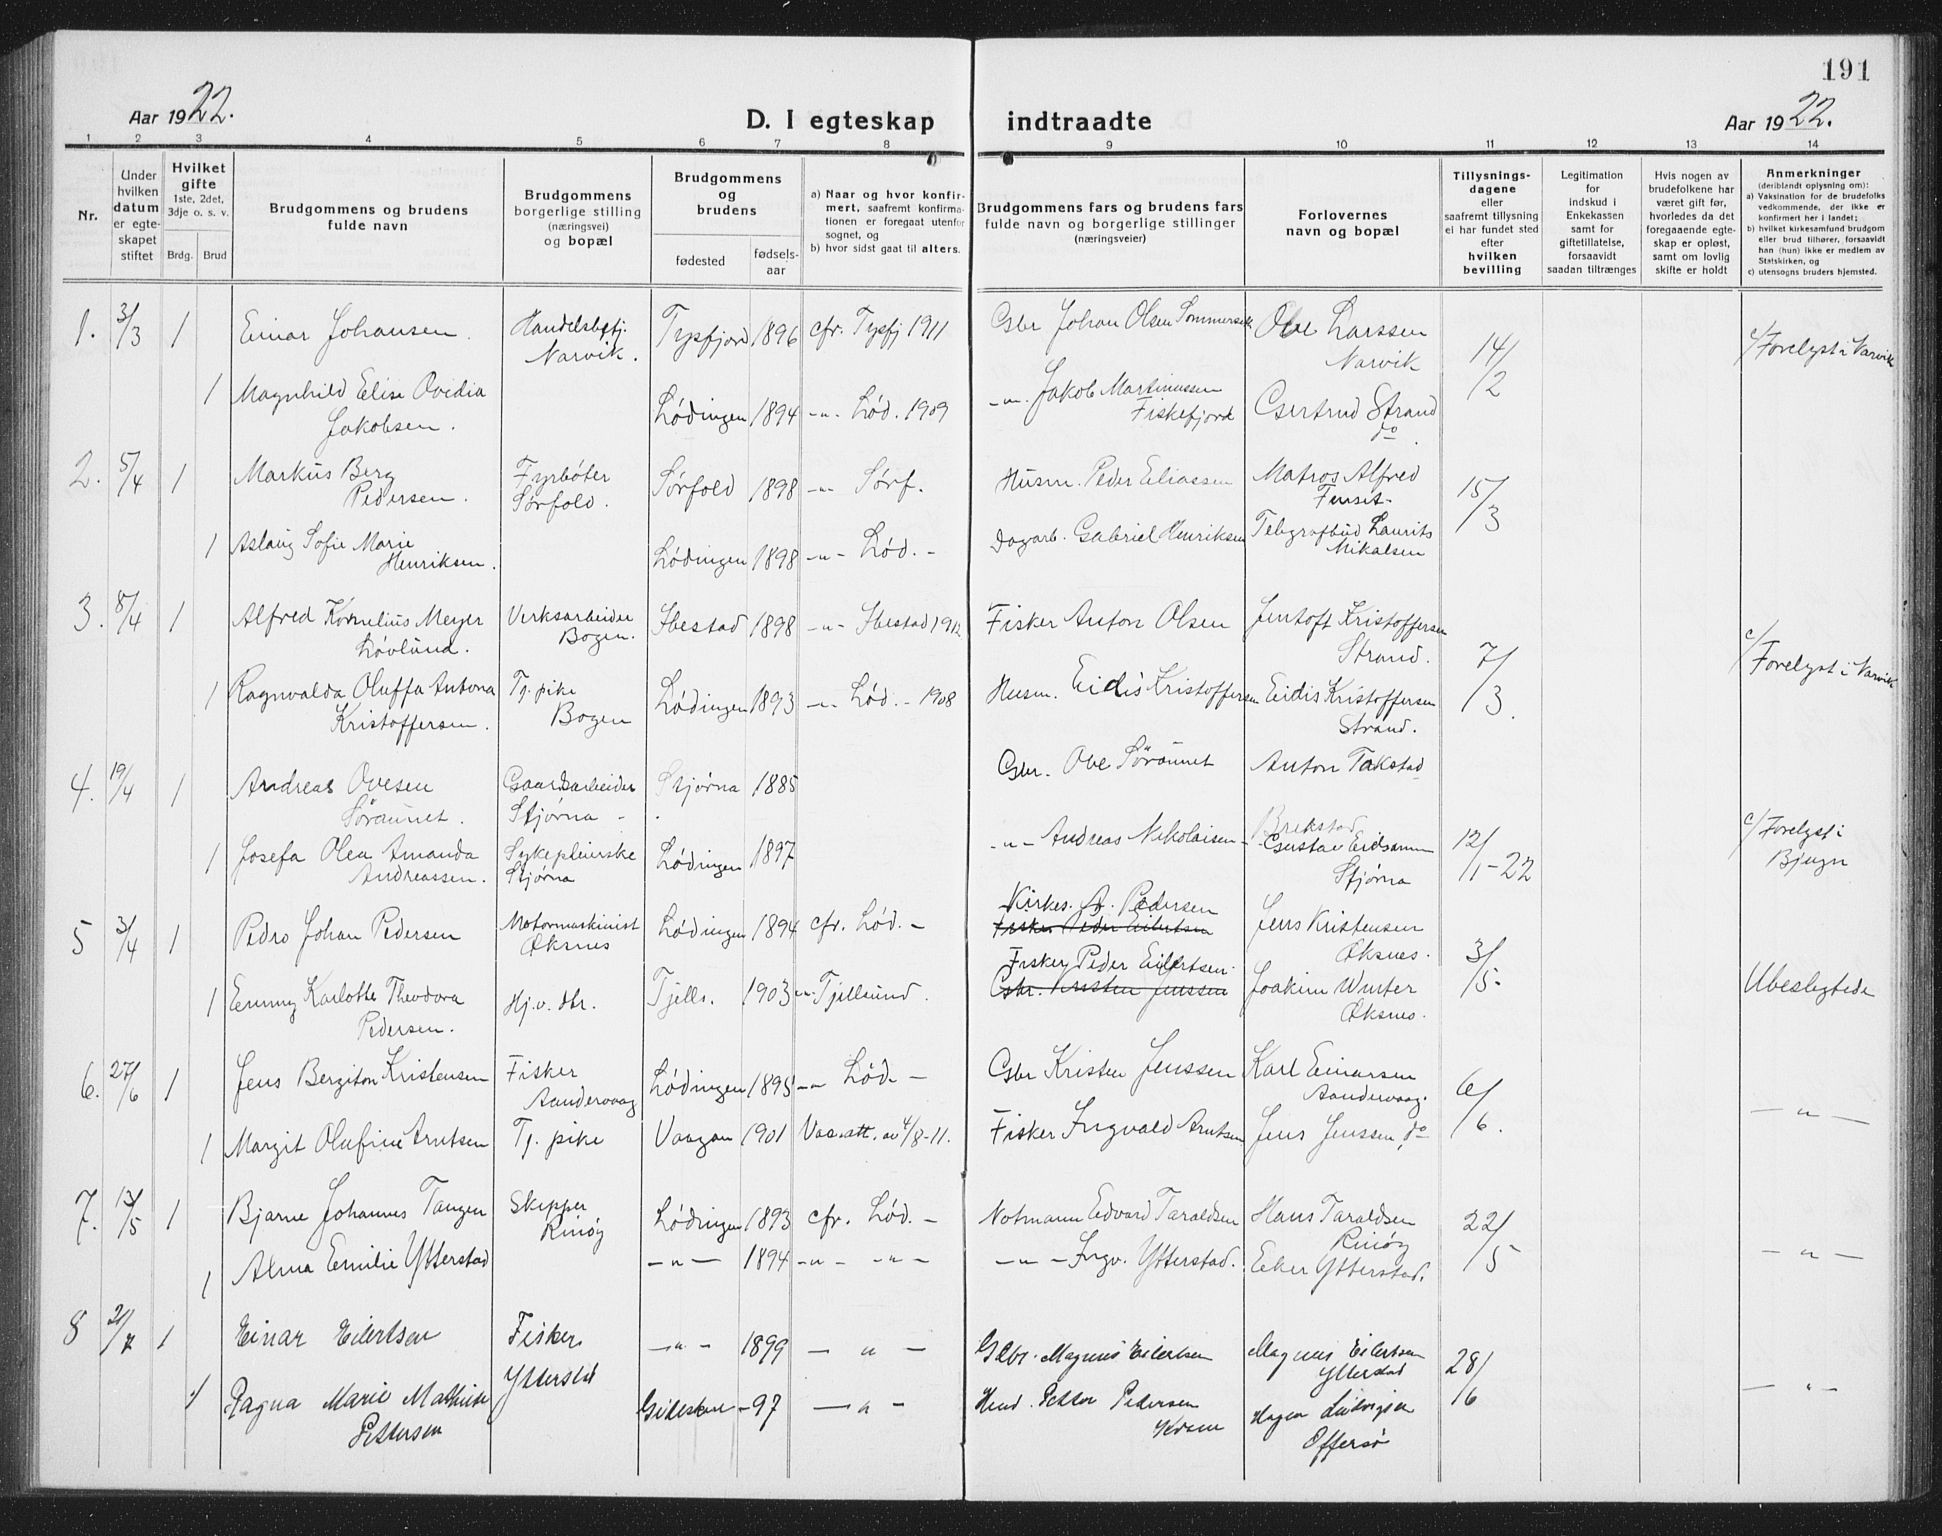 191
Aar 1922.
D. I egteskap
indtraadte
Aar 1922.
1 2 3 4 5 6 7 8 9 10 11 12 13 14
Nr.
Under
hvilken
datum
er egte-
skapet
stiftet
Hvilket
gifte
1ste, 2det,
3dje o. s. v.
Brdg. Brud
Brudgommens og brudens
fulde navn
Brudgommens
borgerlige stilling
(næringsvei)
og bopæl
Brudgommens
og
brudens
fødested
fødsels-
aar
a) Naar og hvor konfir-
mert, saafremt konfirma-
tionen er foregaat utenfor
sognet, og
b) hvor sidst gaat til alters.
Brudgommens fars og brudens fars
fulde navn og borgerlige stillinger
(næringsveier)
Forlovernes
navn og bopæl
Tillysnings-
dagene
eller
saafremt tillysning
ei har fundet sted
efter
hvilken
bevilling
Legitimation
for
indskud i
Enkekassen
samt for
giftetillatelse,
forsaavidt
saadan tiltrænges
Hvis nogen av
brudefolkene har
været gift før,
hvorledes da det
foregaaende egte-
skap er opløst,
samt om lovlig
skifte er holdt
Anmerkninger
(deriblandt oplysning om):
a) Vaksination for de brudefolks
vedkommende, der ikke er
konfirmert her i landet;
b) hvilket kirkesamfund brudgom
eller brud tilhører, forsaavidt
han (hun) ikke er medlem av
Statskirken, og
c) utensogns bruders hjemsted.
1. 3/3 1 Einar Johansen. Handelsbetj. Narvik. Tysfjord 1896 cfr. Tysfj 1911 Gbr Johan Olsen Sommersek Ole Larssen Narvik 14/2 c/ Forelyst i Narvik
1 Magnhild Elise Ovidia Jakobsen. Lødingen 1894 -"- Lød. 1909 -"- Jakob Martinussen Fiskefjord Gjertrud Strand do.
2. 5/4 1 Markus Berg Pedersen. Fyrbøter Sørfold. Sørfold 1898 -"- Sørf. Husm. Peder Eliassen Matros Alfred 15/3
1 Aslaug Sofie Marie Henriksen. Lødingen 1898 -"- Lød. - Dagarb. Gabriel Henriksen Telegrafbud Laurits Mikalsen
3. 8/4 1 Alfred Kornelius Meyer Løvlund. Verksarbeider Bogen. Ibestad 1898 -"- Ibestad 1912 Fisker Anton Olsen Jentoft Kristoffersen Strand. 7/3. c/ Forelyst i Narvik
1 Ragnvalda Oluffa Antona Kristoffersen. Tj. pike Bogen Lødingen 1893 -"- Lød. - 1908 Husm. Eidis Kristoffersen Eidis Kristoffersen Strand.
4. 19/4 1 Andreas Ovesen Søraunet. Gaardsarbeider Stjørna - Stjørna 1885 Gbr. Ove Søraunet Anton Takstad Brekstad 12/1-22 c/ Forelyst i Bjugn
1 Josefa Olea Amanda Andreassen. Sykepleierske Stjørna Lødingen 1897 -"- Andreas Nikolaisen - Gustav Eidsaunn Stjørna
5 3/4 1 Pedro Johan Pedersen Motormaskinist Øksnes Lødingen 1894 cfr. Lød. - Kirkes. A. Pedersen Fisker Peder Eilertsen Jens Kristensen Øksnes. 3/5- Ubeslegtede
1 Emmy Karlotte Theodora Pedersen. Hj.v. dtr. Tjells. 1903 -"- Tjellsund. Fisker Peder Eilertsen. Gbr. Kristen Jenssen Joakim Winter Øksnes.
6. 27/6 1 Jens Bergiton Kristensen Fisker Aandervaag Lødingen 1895 -"- Lød. - Gbr Kristen Jenssen Karl Einarsen Aandervaag. 6/6. -"-
1 Margit Olufine Arntsen Tj. pike Vaagan 1901 Vac.att. av 4/8-11. Fisker Ingvald Arntsen Jens Jenssen, do
7. 13/5 1 Bjarne Johannes Tangen Skipper Rinøy Lødingen 1893 cfr. Lød. - Notmann Edvard Taraldsen Hans Taraldsen Rinøy 22/5 -"-
1 Alma Emilie Ytterstad -"- 1894 -"- -"- -"- Ingv. Ytterstad. Eiker Ytterstad.
8 1 Einar Eilertsen Fisker Ytterstad -"- 1899 -"- Gbr. Magnus Eilertsen Magnus Eilertsen Ytterstad 28/6 -"-
1 Ragna Marie Mathilde Pettersen -97 -"- Petter Pedersen Hagen Ludvigsen Offersø